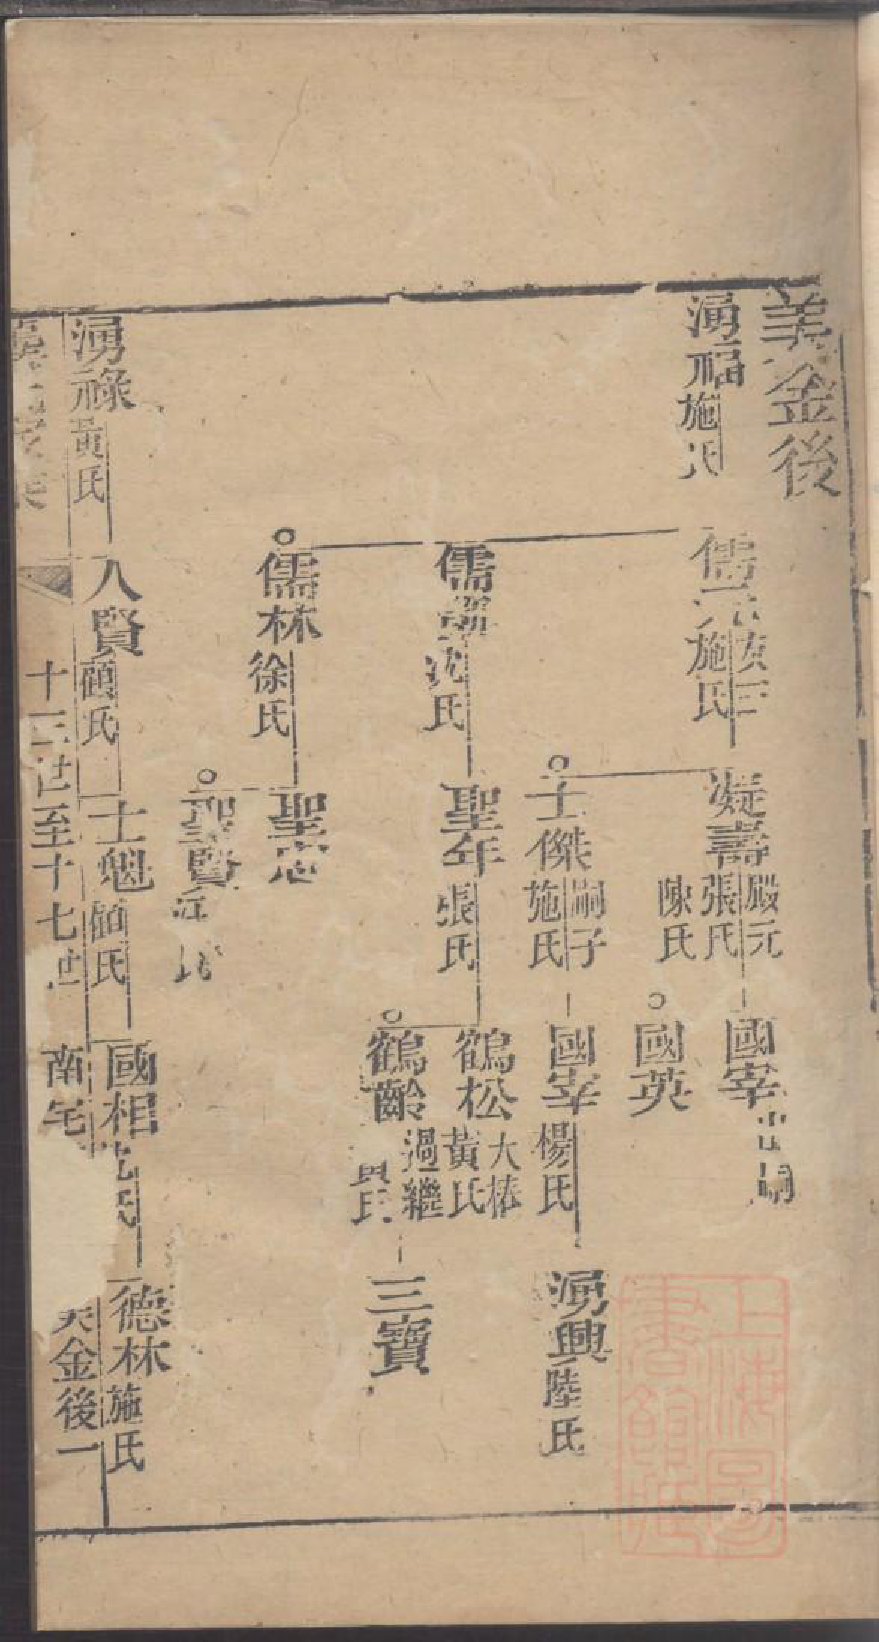 美金後
湧福 施氏
儒 友三 施氏
儒 沈氏
儒林 徐氏
凝壽 殿元 張氏 陳氏
士傑 嗣子 施氏
聖年 張氏
聖忠
聖賢 氏
國宰 出嗣
國英
國宰 楊氏
鶴松 大椿 黃氏
鶴齡 過繼 氏
湧興 陸氏
三寶
湧祿 黃氏
人賢 顧氏
士魁 氏
國相 氏
德林 施氏
十三世至十七世
南宅
美金後一
上海圖書館藏